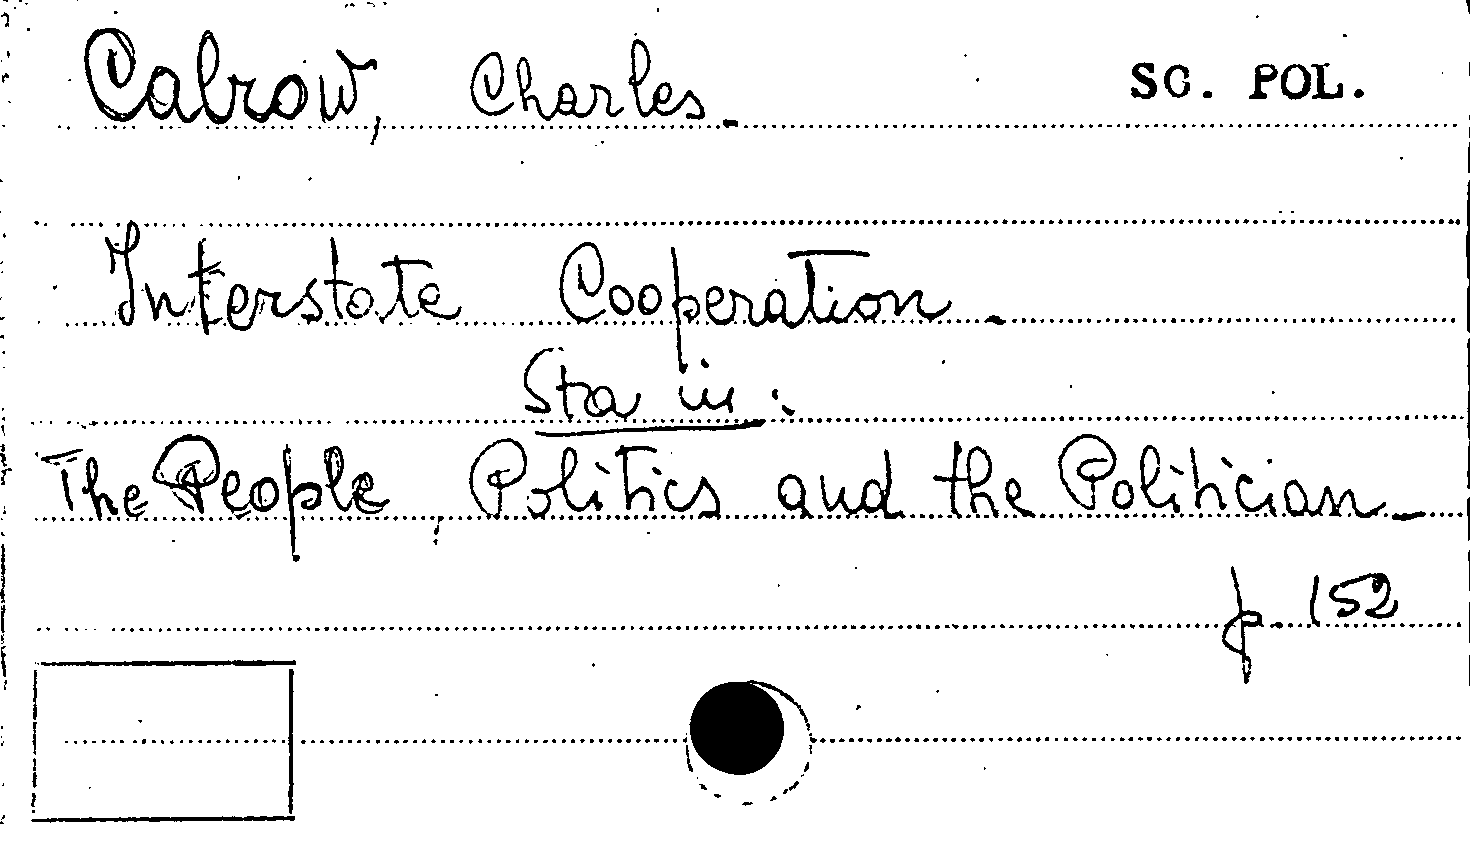 Calrow, Charles. SC. POL.
Interstate Cooperation.
Sta in:
The People, Politics and the Politician.
p. 152